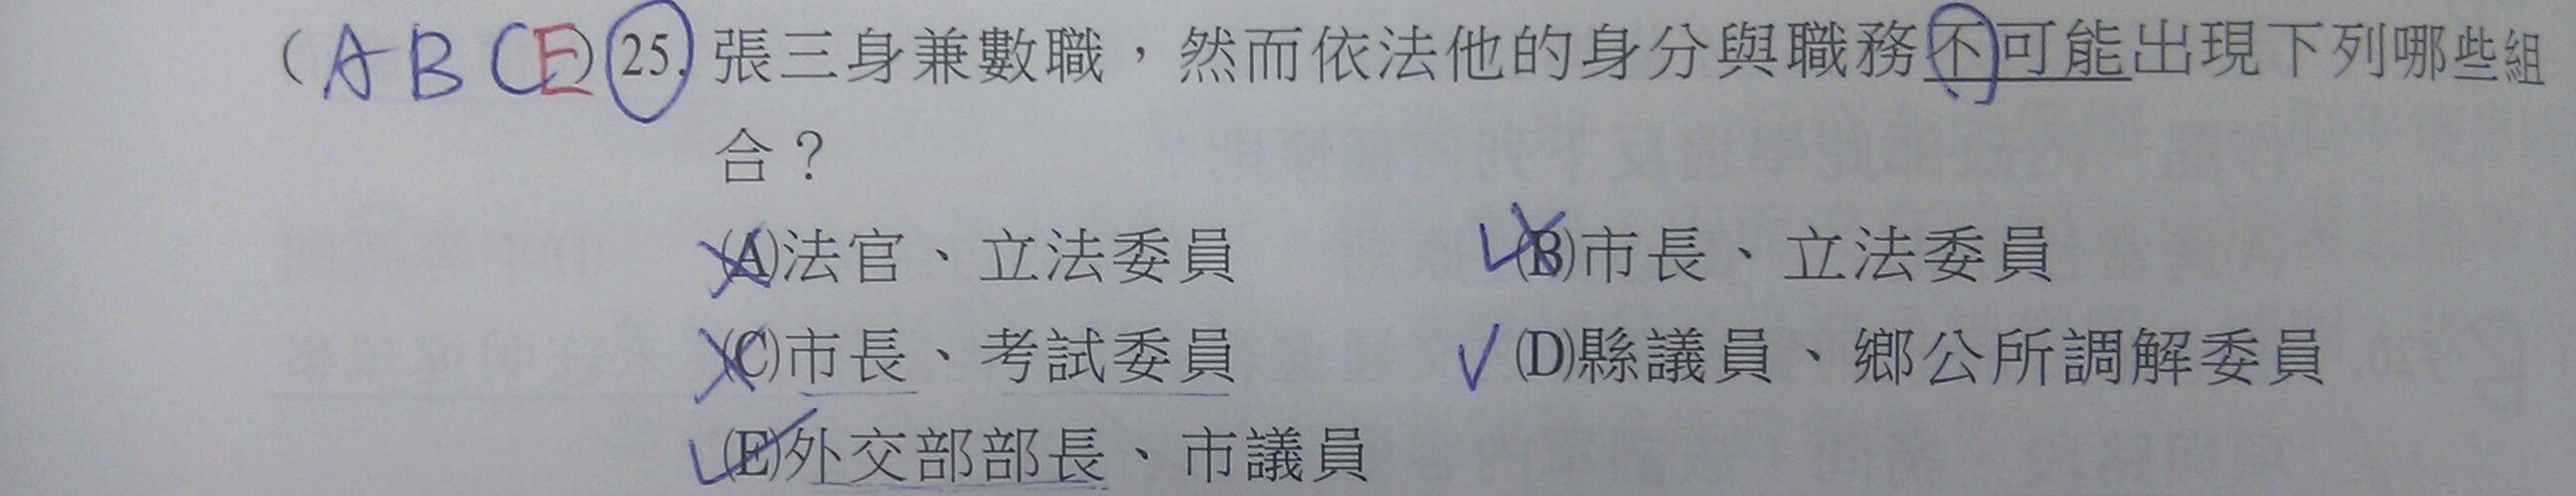 (ABCE)25. 張三身兼數職，然而依法他的身分與職務不可能出現下列哪些組
合？
(A)法官、立法委員 (B)市長、立法委員
(C)市長、考試委員 (D)縣議員、鄉公所調解委員
(E)外交部部長、市議員